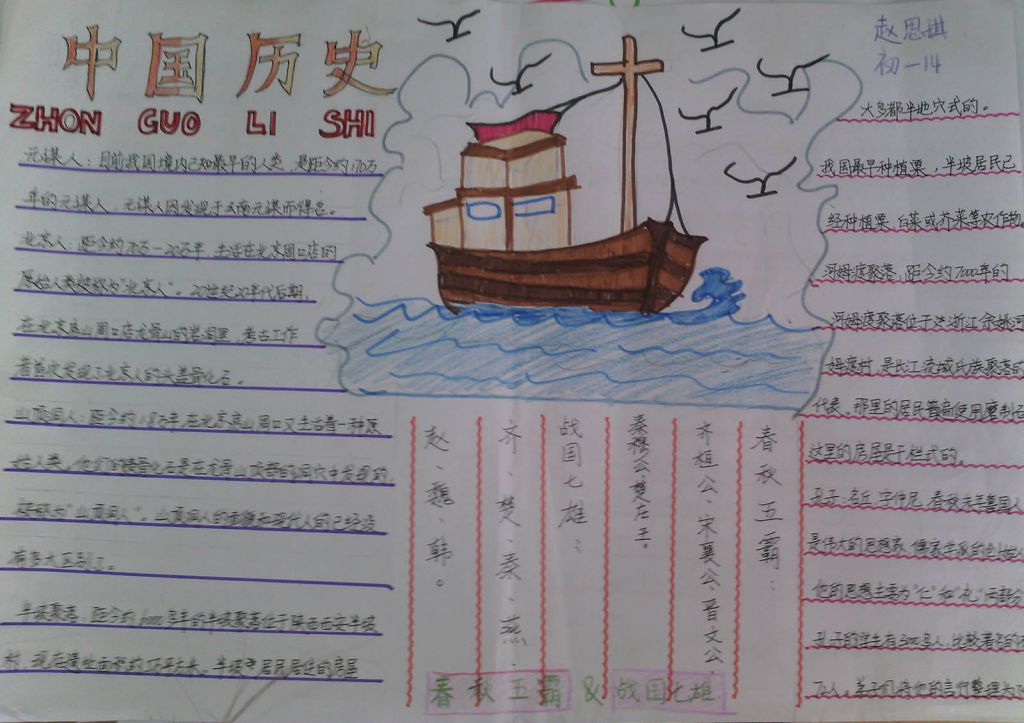 中国历史
ZHON GUO LI SHI
赵思琪
初一14
元谋人：目前我国境内已知最早的人类，是距今约170万
年的元谋人，元谋人因发现于云南元谋而得名。
北京人：距今约70万—20万年，生活在北京周口店的
原始人类被称为"北京人"。20世纪20年代后期，
在北京房山周口店龙骨山的岩洞里，考古工作
者首次发现了北京人的头盖骨化石。
山顶洞人：距今约1.8万年，在北京房山周口又生活着一种原
始人类，他们的骨化石是在龙骨山顶部的洞穴中发现的，
被称为"山顶洞人"。山顶洞人的面貌和现代人的已经没
有多大区别了。
半坡聚落：距今约6000多年的半坡聚落位于陕西西安半坡
村，现存遗址面积约5万平方米。半坡居民居住的房屋
大多都半地穴式的。
我国最早种植粟，半坡居民已
经种植粟、白菜或芥菜等农作物
河姆渡聚落：距今约7000年的
河姆渡聚落位于浙江余姚河
姆渡村，是长江流域氏族聚落的
代表。那里的居民普遍使用磨制石
这里的房屋是干栏式的。
孔子：名丘，字仲尼，春秋末年鲁国人
是伟大的思想家，儒家学派的创始人
他的思想主要为"仁"和"礼"
孔子的学生有3000多人，比较著名的有
72人，弟子们将他的言行整理为
春秋五霸：
齐桓公、宋襄公、晋文公
秦穆公楚庄王。
战国七雄：
齐、楚、秦、燕、
赵、魏、韩。
春秋五霸 & 战国七雄